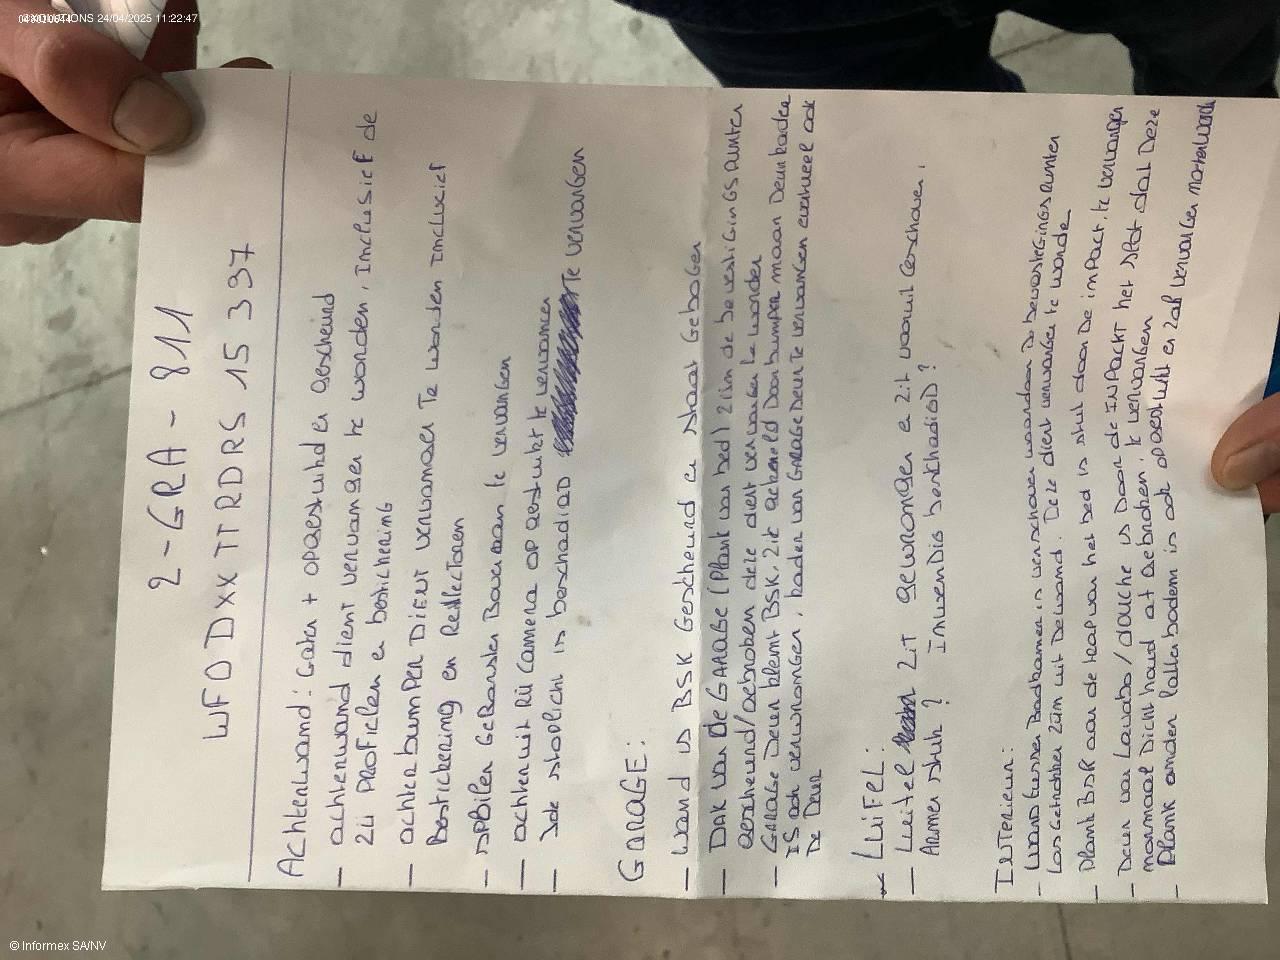 EXOLUTIONS 24/04/2025 11:22:47
2-GRA-811
WFODXXTTRDRS 15397
ACHterwand: Gaten + opgestuikt en gescheurd
- achterwand dient vervangen te worden, inclusief de
zij profielen e bestickering
- achterbumper DIENT vervangen Te worden Inclusief
Bestickering en Reflectoren
- spoiler Gebarsten Bovenaan te vervangen
- achteruit Rij Camera opgestuikt te vervangen
- 3de stoplicht is beschadigD Te vervangen
GARAGE:
- wand is BSK Gescheurd en staat Gebogen
- DAK van de GARAGE (Plank van bed) zijn de bevestigingspunten
gescheurd/gebroken deze dient vervangen te worden
- GARAGE Deur klemt BSK, zit gekneld Door bumper maar Deurkader
IS ook verwrongen, kader van GARAGE Deur te vervangen eventueel ook
De Deur
LUIFEL:
- Luifel zit gewrongen e zit vooruit Geschoven,
Armen stuk? Inwendig beschadigD?
INTERIEUR:
- Wand tussen Badkamer is verschoven waardoor De bevestigingspunten
los Getrokken zijn uit De wand. Deze dient vervangen te worde
- Plank BSR aan de trap van het bed is stuk door De impact, te vervangen
- Deur van Lavabo/douche is Door de INPACKT het slot dat Deze
normaal Dicht houd af gebroken, te vervangen
- Plank onder lattenbodem is ook opgestuikt en zal vervangen moeten worde
© Informex SA/NV